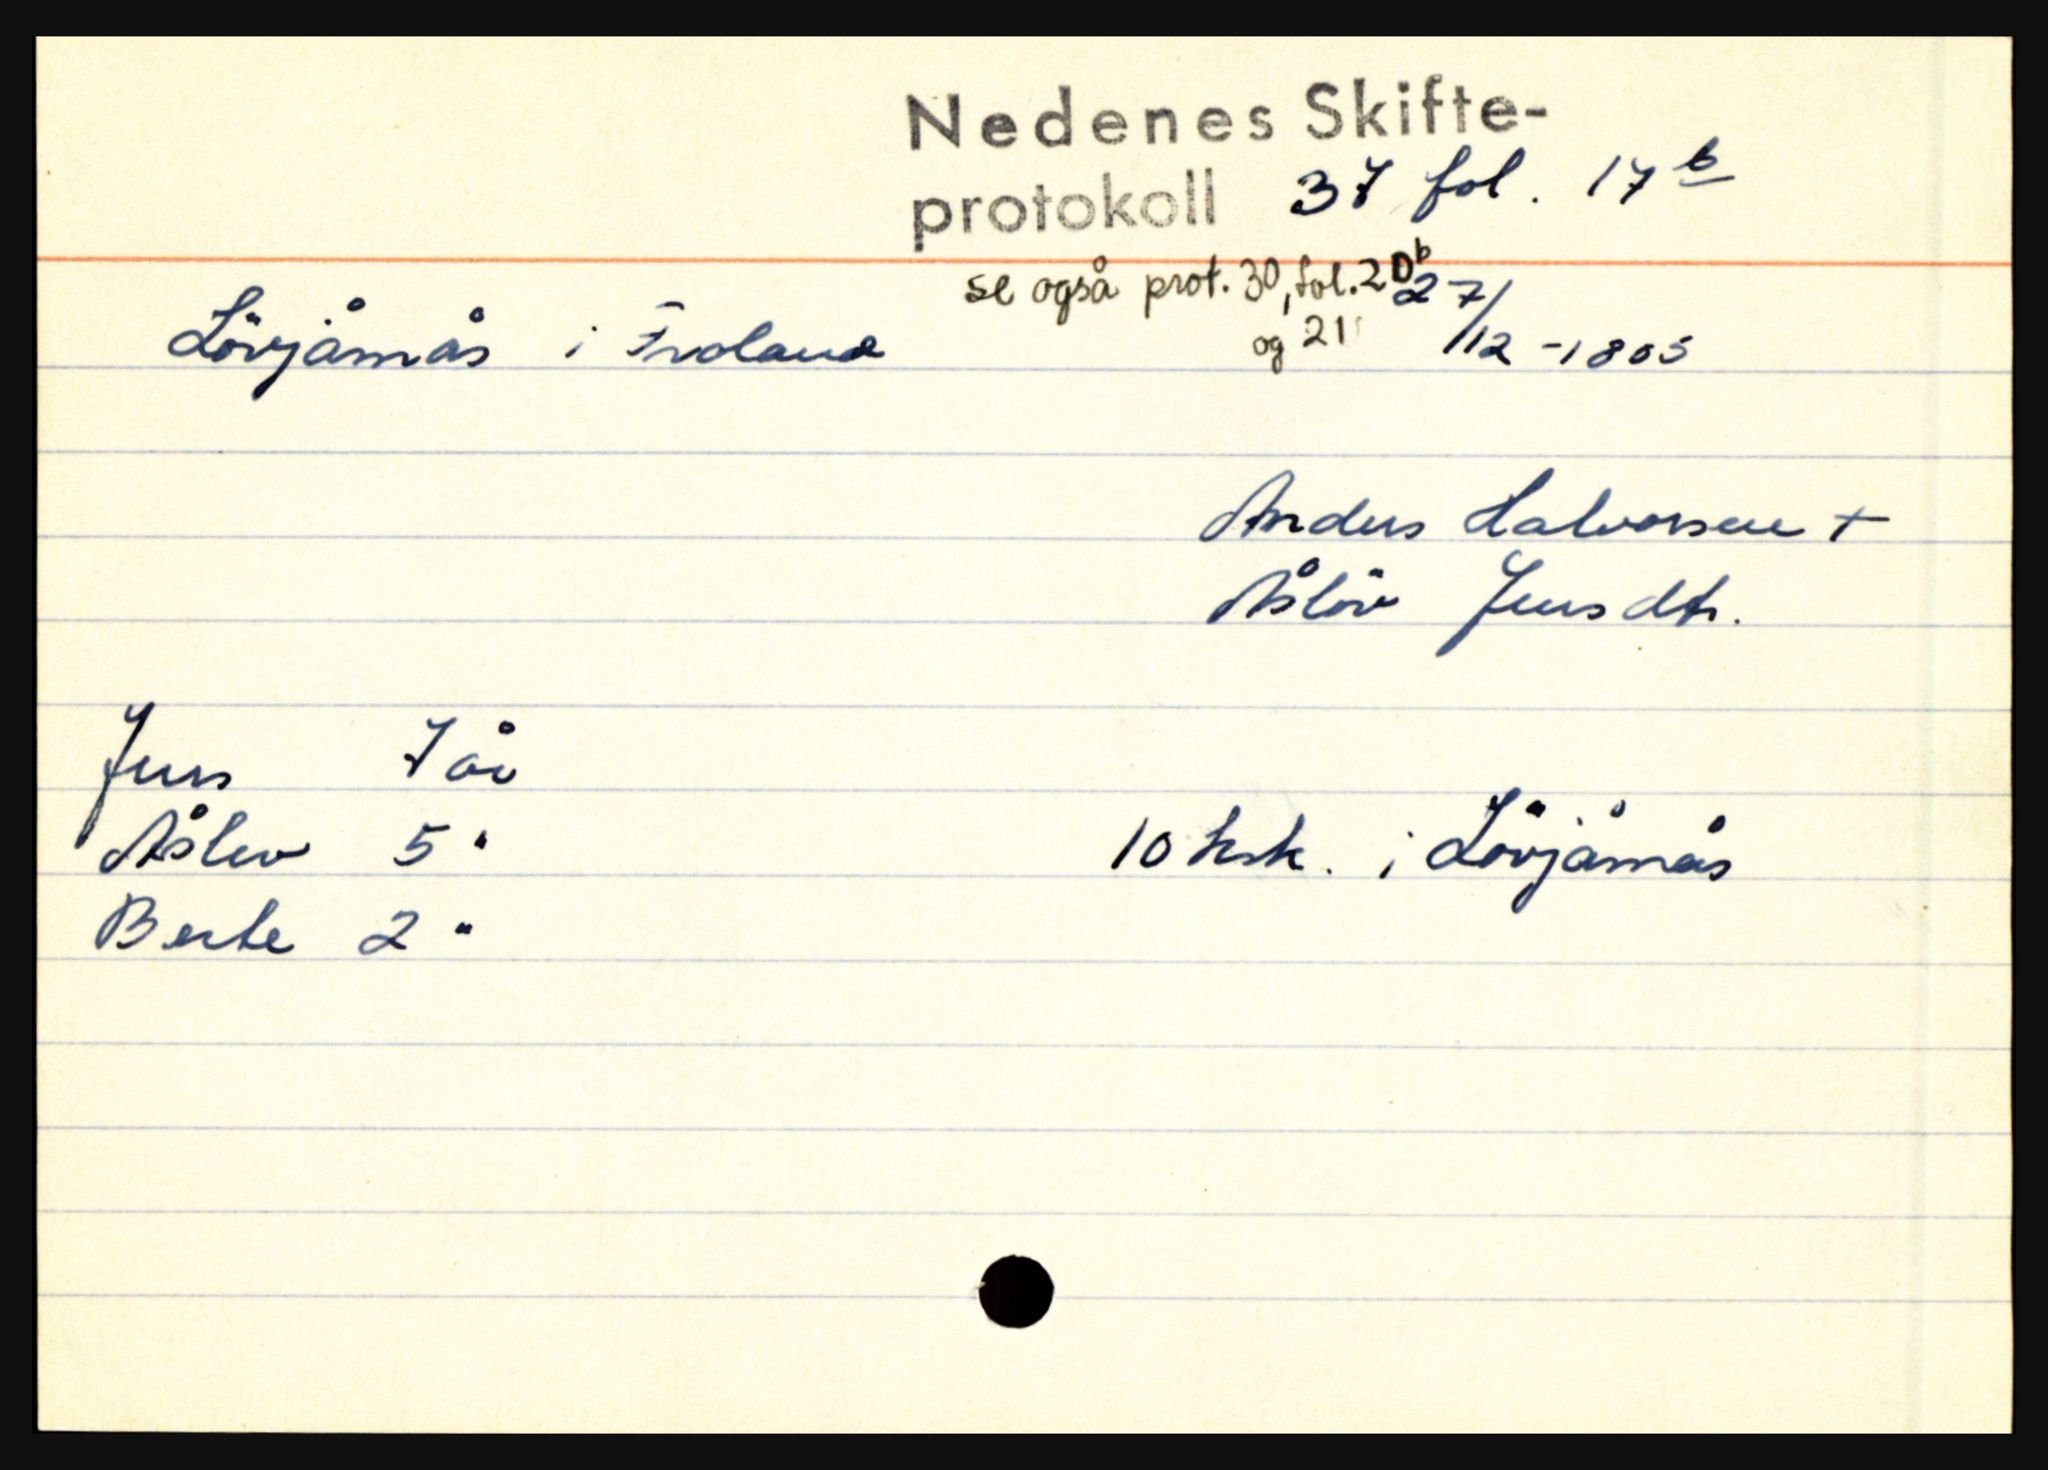 Nedenes Skifte-
protokoll 37 fol. 17 b
se også prot. 30, fol. 20b
og 21
27/12-1805
Lövjåmås i Froland
Anders Halvorsen +
Åslöv Jensdtr.
Jens 7 år
Åslev 5 "
10 hsk. i Lövjåmås
Berte 2 "